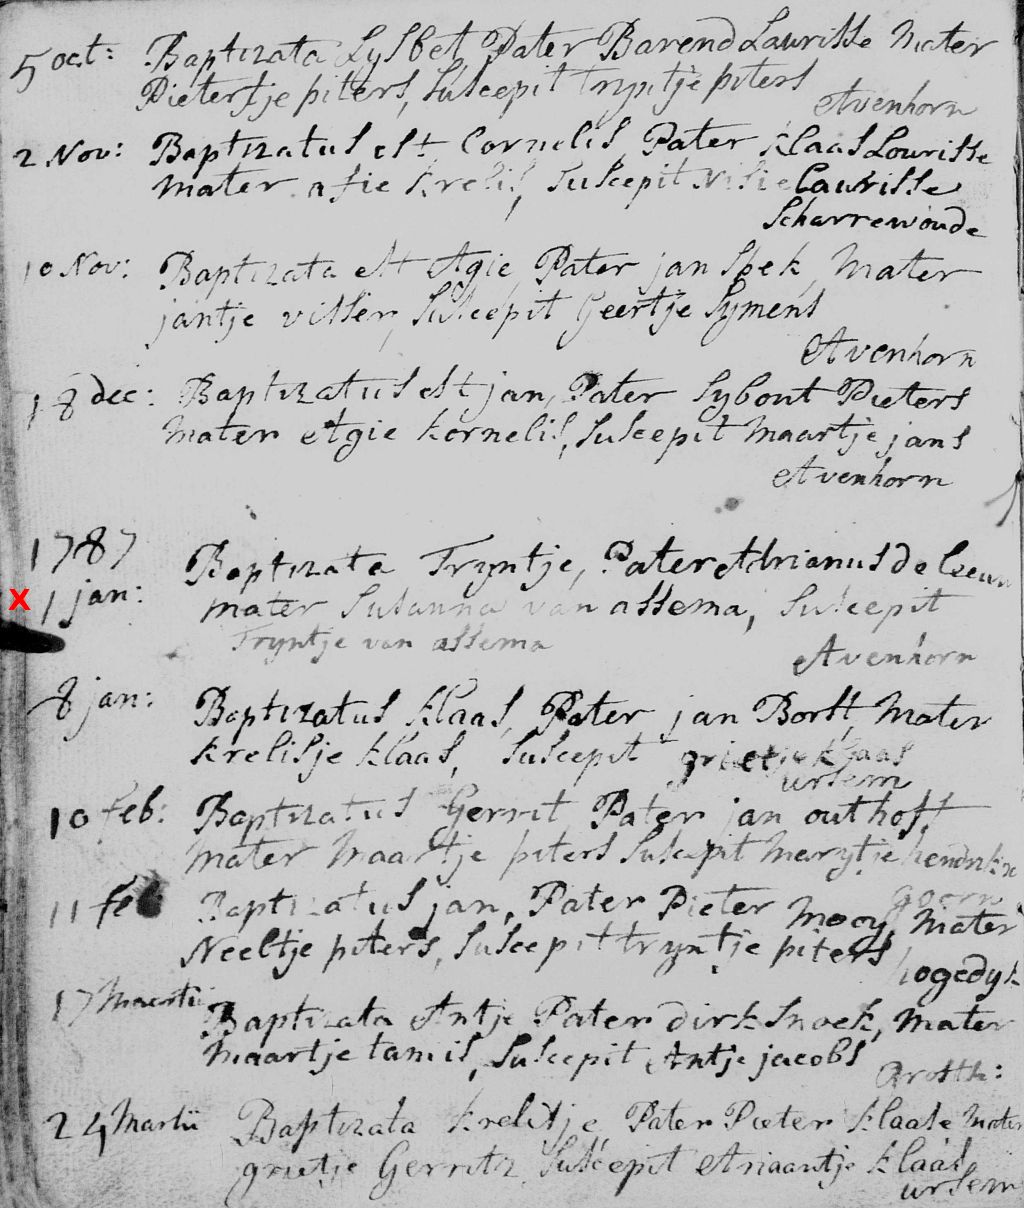 5 oct: Baptizata Lysbet, Pater Barend Laurisse Mater
Pietertje piters, Suscepit tryntje piters
Avenhorn
2 Nov: Baptizatus est Cornelis Pater klaas Lourisse
mater afie krelis, Suscepit Nisie Laurisse
Scharrewoude
10 Nov: Baptizata est Agie, Pater jan Spek, Mater
jantje visser, Suscepit Geertje Symens
Avenhorn
18 dec: Baptizatus est jan, Pater Sybout Pieters
Mater Agie kornelis, Suscepit Maartje jans
Avenhorn
1787
X 1 jan: Baptizata Tryntje, Pater Adrianus de
mater Susanna van assema, Suscepit
Tryntje van assema
Avenhorn
8 jan: Baptizatus klaas, Pater jan Borst, Mater
krelisje klaas, Suscepit grietje klaas
ursem
10 feb: Baptizatus Gerrit Pater jan outhoff
Mater Maartje piters Suscepit Marytje
goorn
11 feb Baptizatus jan, Pater Pieter Mooy, Mater
Neeltje piters, Suscepit tryntje piters
hogedyk
17 Maartii Baptizata Antje Pater dirk Snoek, Mater
Maartje tamis, Suscepit Antje jacobs
Grotth:
24 Martii Baptizata krelitje Pater Pieter klaase Mater
grietje Gerritz Suscepit Ariaantje klaas
ursem